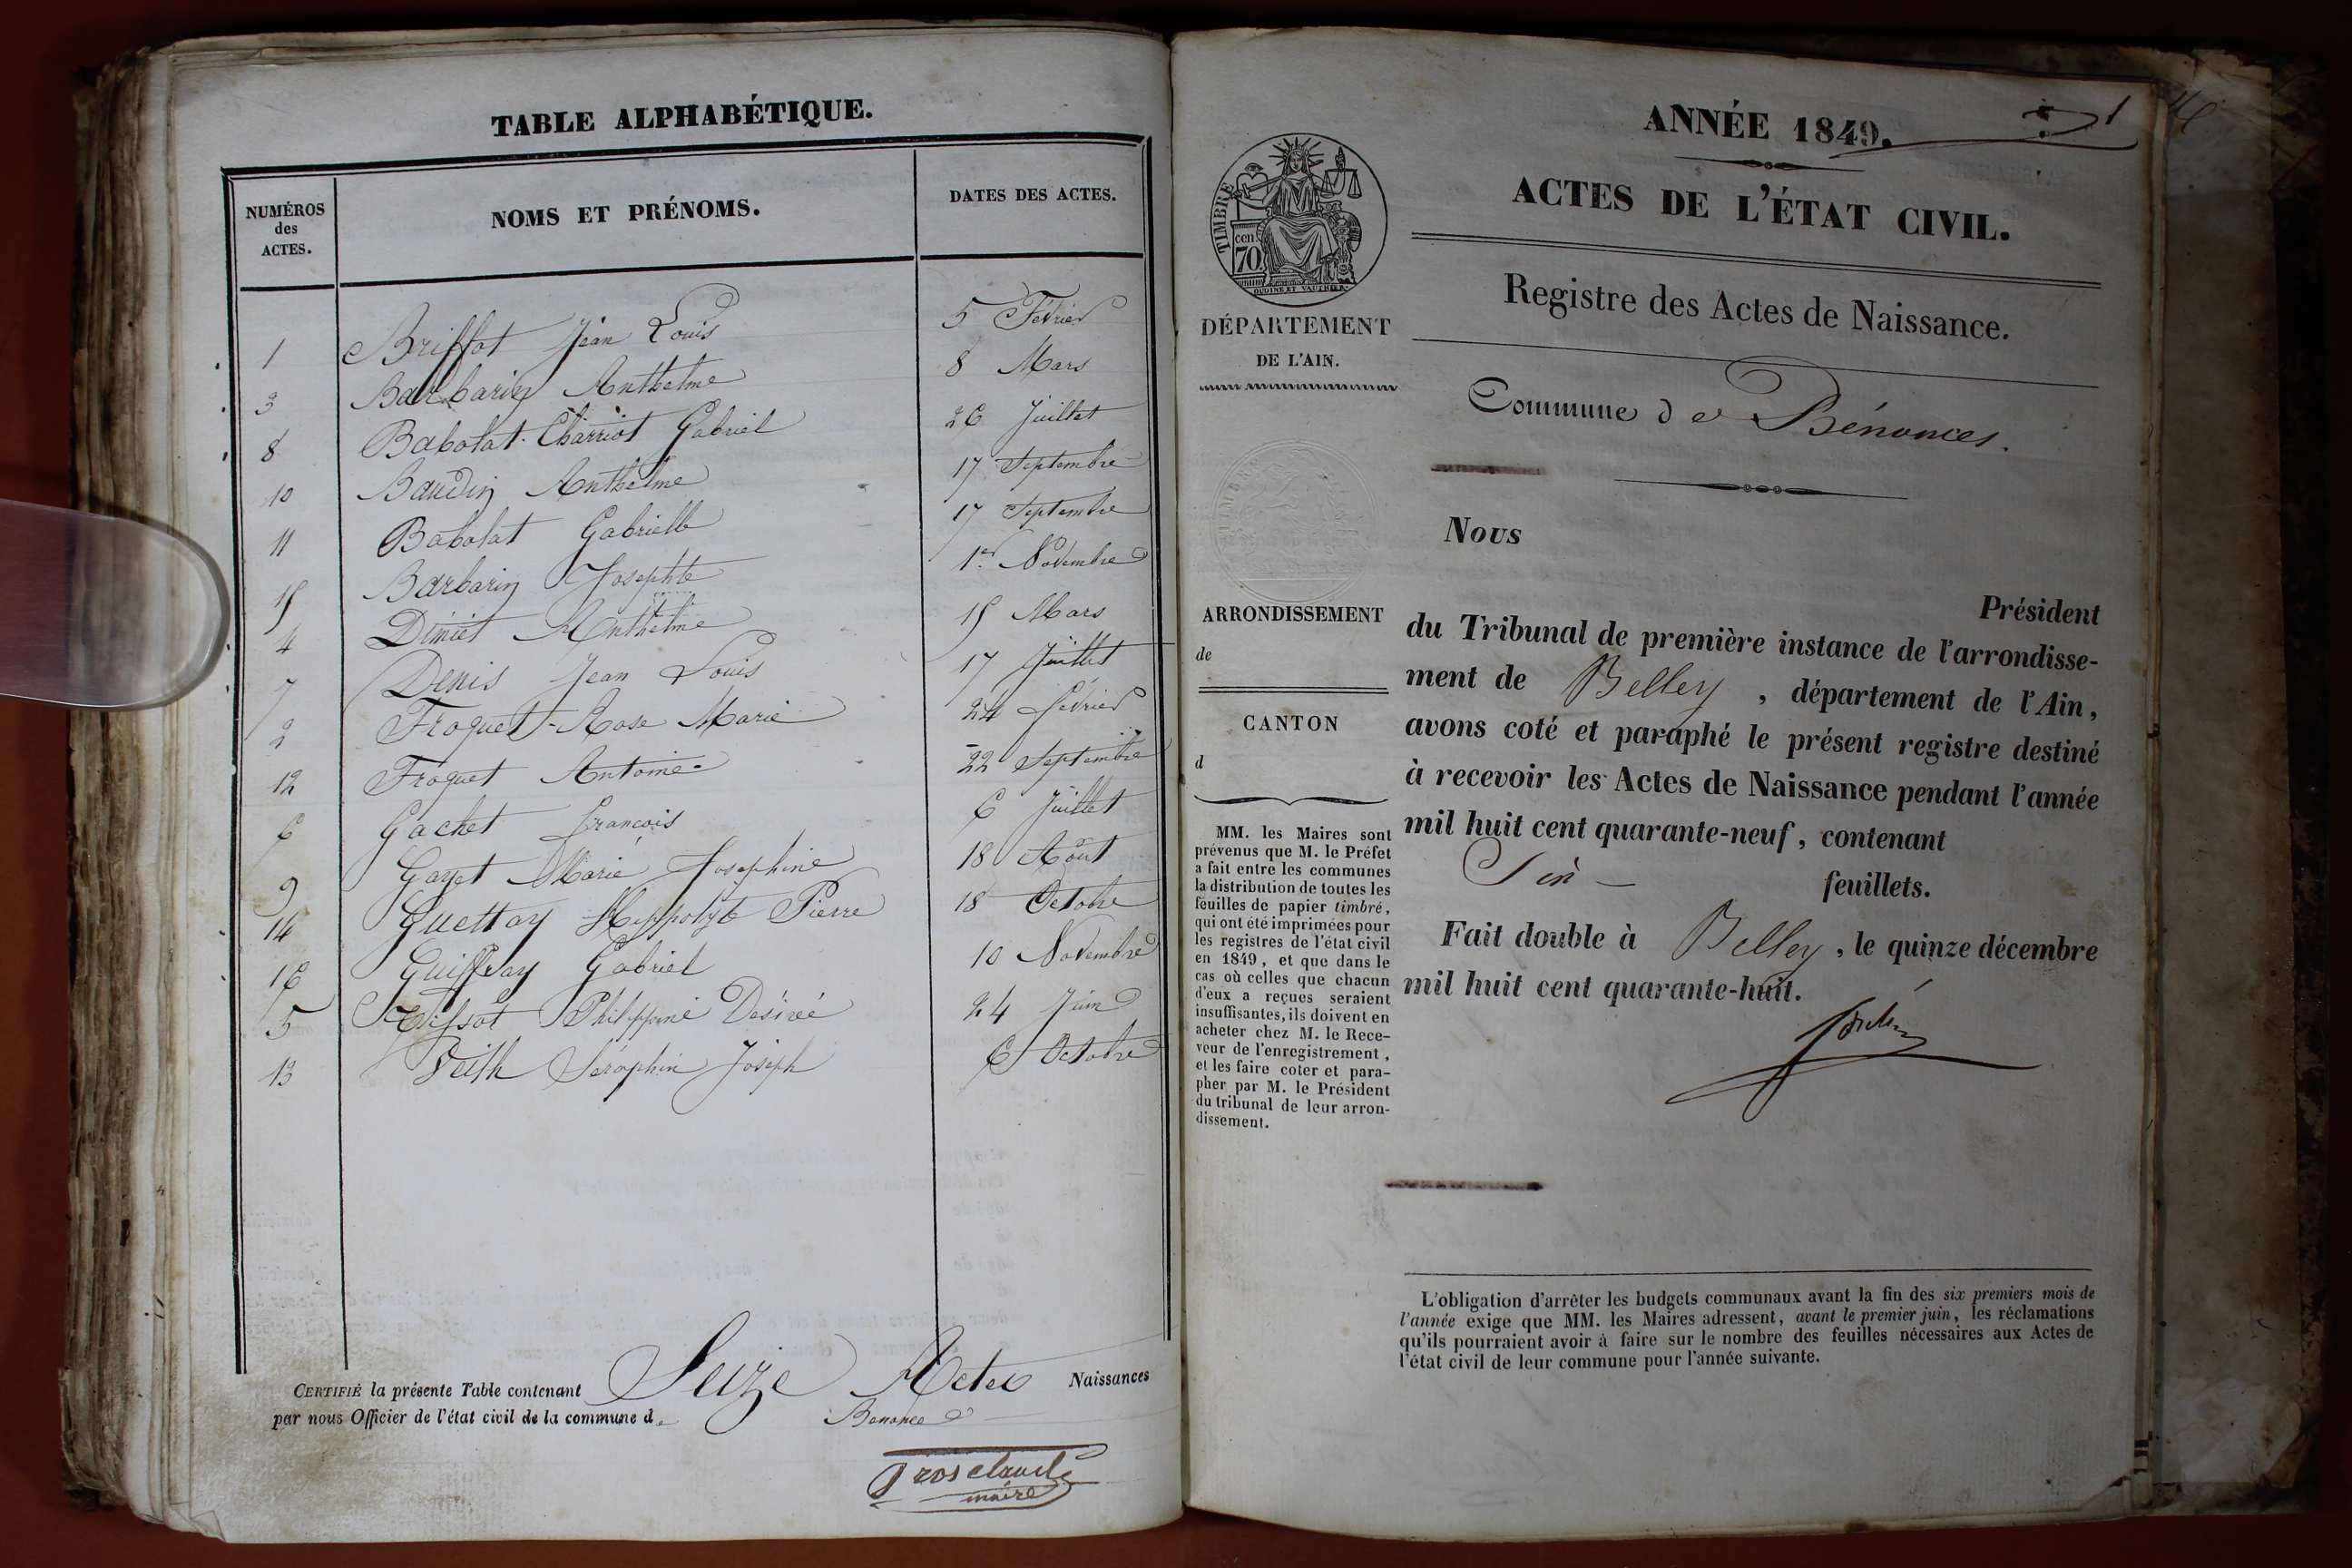 TABLE ALPHABÉTIQUE.
NUMÉROS des ACTES.
NOMS ET PRÉNOMS.
DATES DES ACTES.
1 Briffot Jean Louis 5 Février
3 Barbarin Anthelme 8 Mars
8 Babolat-Charriot Gabriel 26 Juillet
10 Baudin Anthelme 17 Septembre
11 Babolat Gabrielle 17 Septembre
15 Barbarin Josephte 1er Novembre
4 Anthelme 15 Mars
7 Denis Jean Louis 17 Juillet
2 Froquet-Rose Marie 24 février
12 Froquet Antoine 22 Septembre
6 Gachet francois 6 Juillet
9 Gayet Marie Josephine 18 Août
14 Guettay Hyppolyte Pierre 18 Octobre
16 Guiffray Gabriel 10 Novembre
5 Philippine Désirée 24 Juin
13 Séraphin Joseph 6 Octobre
CERTIFIÉ la présente Table contenant Seize Actes Naissances
par nous Officier de l'état civil de la commune d. Benonce
Grosclaude
maire
1
ANNÉE 1849.
ACTES DE L'ÉTAT CIVIL.
Registre des Actes de Naissance.
Commune de Bénonces.
TIMBRE
cen. 70
OUDINÉ ET VAUTHIER
DÉPARTEMENT
DE L'AIN.
ARRONDISSEMENT
de
CANTON
d
MM. les Maires sont
prévenus que M. le Préfet
a fait entre les communes
la distribution de toutes les
feuilles de papier timbré,
qui ont été imprimées pour
les registres de l'état civil
en 1849, et que dans le
cas où celles que chacun
d'eux a reçues seraient
insuffisantes, ils doivent en
acheter chez M. le Rece-
veur de l'enregistrement,
et les faire coter et para-
pher par M. le Président
du tribunal de leur arron-
dissement.
Nous
Président
du Tribunal de première instance de l'arrondisse-
ment de Belley, département de l'Ain,
avons coté et paraphé le présent registre destiné
à recevoir les Actes de Naissance pendant l'année
mil huit cent quarante-neuf, contenant
feuillets.
Fait double à Belley, le quinze décembre
mil huit cent quarante-huit.
L'obligation d'arrêter les budgets communaux avant la fin des six premiers mois de
l'année exige que MM. les Maires adressent, avant le premier juin, les réclamations
qu'ils pourraient avoir à faire sur le nombre des feuilles nécessaires aux Actes de
l'état civil de leur commune pour l'année suivante.